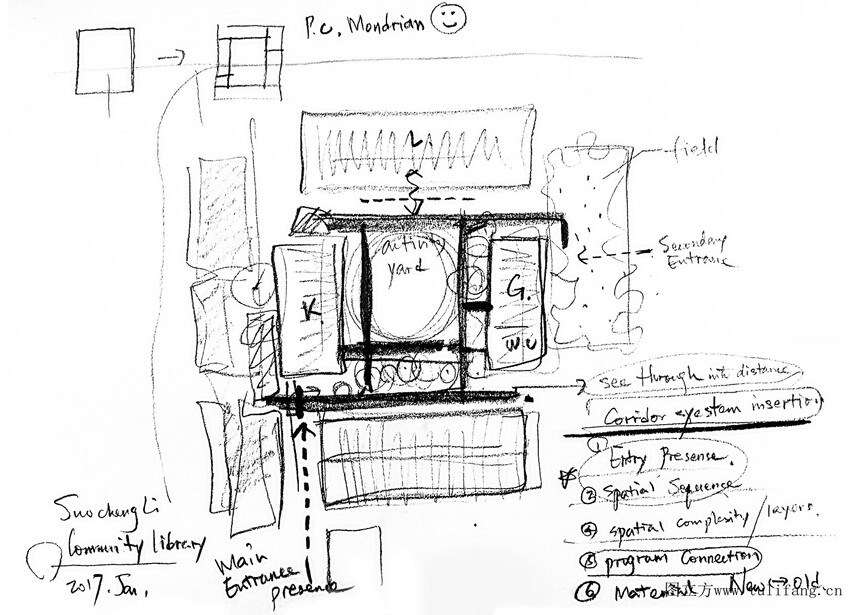 P.C. Mondrian
L
field
activity
yard
Secondary
Entrance
K
G.
W.C
see through into distance
Corridor system insertion
① Entry Presense.
② Spatial Sequence
④ spatial complexity / layers.
⑤ program connection
⑥ Material New → old
SuochengLi
Community library
2017. Jan.
Main
Entrance
presence
图立方 www.tulifang.cn